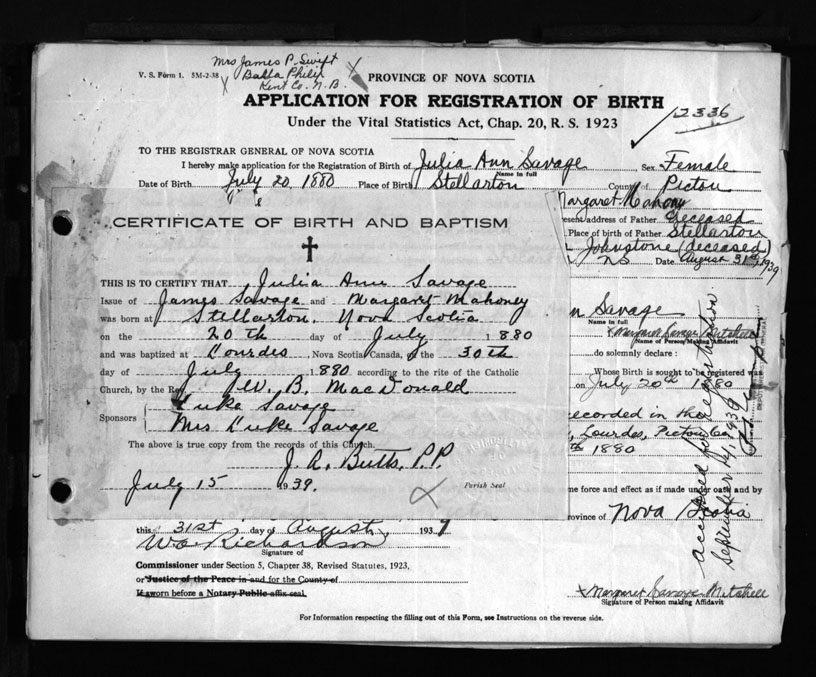 Mrs James P. Swift
V. S. Form 1. 5M-2-38
Balla Philip
Kent Co. N.B.
PROVINCE OF NOVA SCOTIA
APPLICATION FOR REGISTRATION OF BIRTH
12336
Under the Vital Statistics Act, Chap. 20, R. S. 1923
TO THE REGISTRAR GENERAL OF NOVA SCOTIA
I hereby make application for the Registration of Birth of Julia Ann Savage Sex Female
Name in full
Date of Birth July 20, 1880 Place of Birth Stellarton County of Pictou
Margaret Mahony
esent address of Father Deceased
Place of birth of Father Stellarton
Johnstone (deceased)
NS Date August 31st 1939
CERTIFICATE OF BIRTH AND BAPTISM
THIS IS TO CERTIFY THAT Julia Ann Savage
Issue of James Savage and Margaret Mahoney
was born at Stellarton, Nova Scotia
on the 20th day of July 1880
and was baptized at Lourdes, Nova Scotia Canada, on the 30th
day of July 1880 according to the rite of the Catholic
Church, by the Rev. W. B. MacDonald
Sponsors Luke Savage
Mrs Luke Savage
The above is true copy from the records of this Church.
J. A. Butts, P.P.
July 15 1939.
Parish Seal
n Savage
Name in full
Margaret Savage Mitchell
Name of Person Making Affidavit
do solemnly declare :
Whose Birth is sought to be registered was
on July 20th 1880
recorded in the
Lourdes, Pictou Co.
th 1880
me force and effect as if made under oath and by
rovince of Nova Scotia
accepted for registration
September 14, 1939
this 31st day of August, 1939
W Richardson
Signature of
Commissioner under Section 5, Chapter 38, Revised Statutes, 1923,
or Justice of the Peace in and for the County of
If sworn before a Notary Public affix seal.
Margaret Savage Mitchell
Signature of Person making Affidavit
For Information respecting the filling out of this Form, see Instructions on the reverse side.